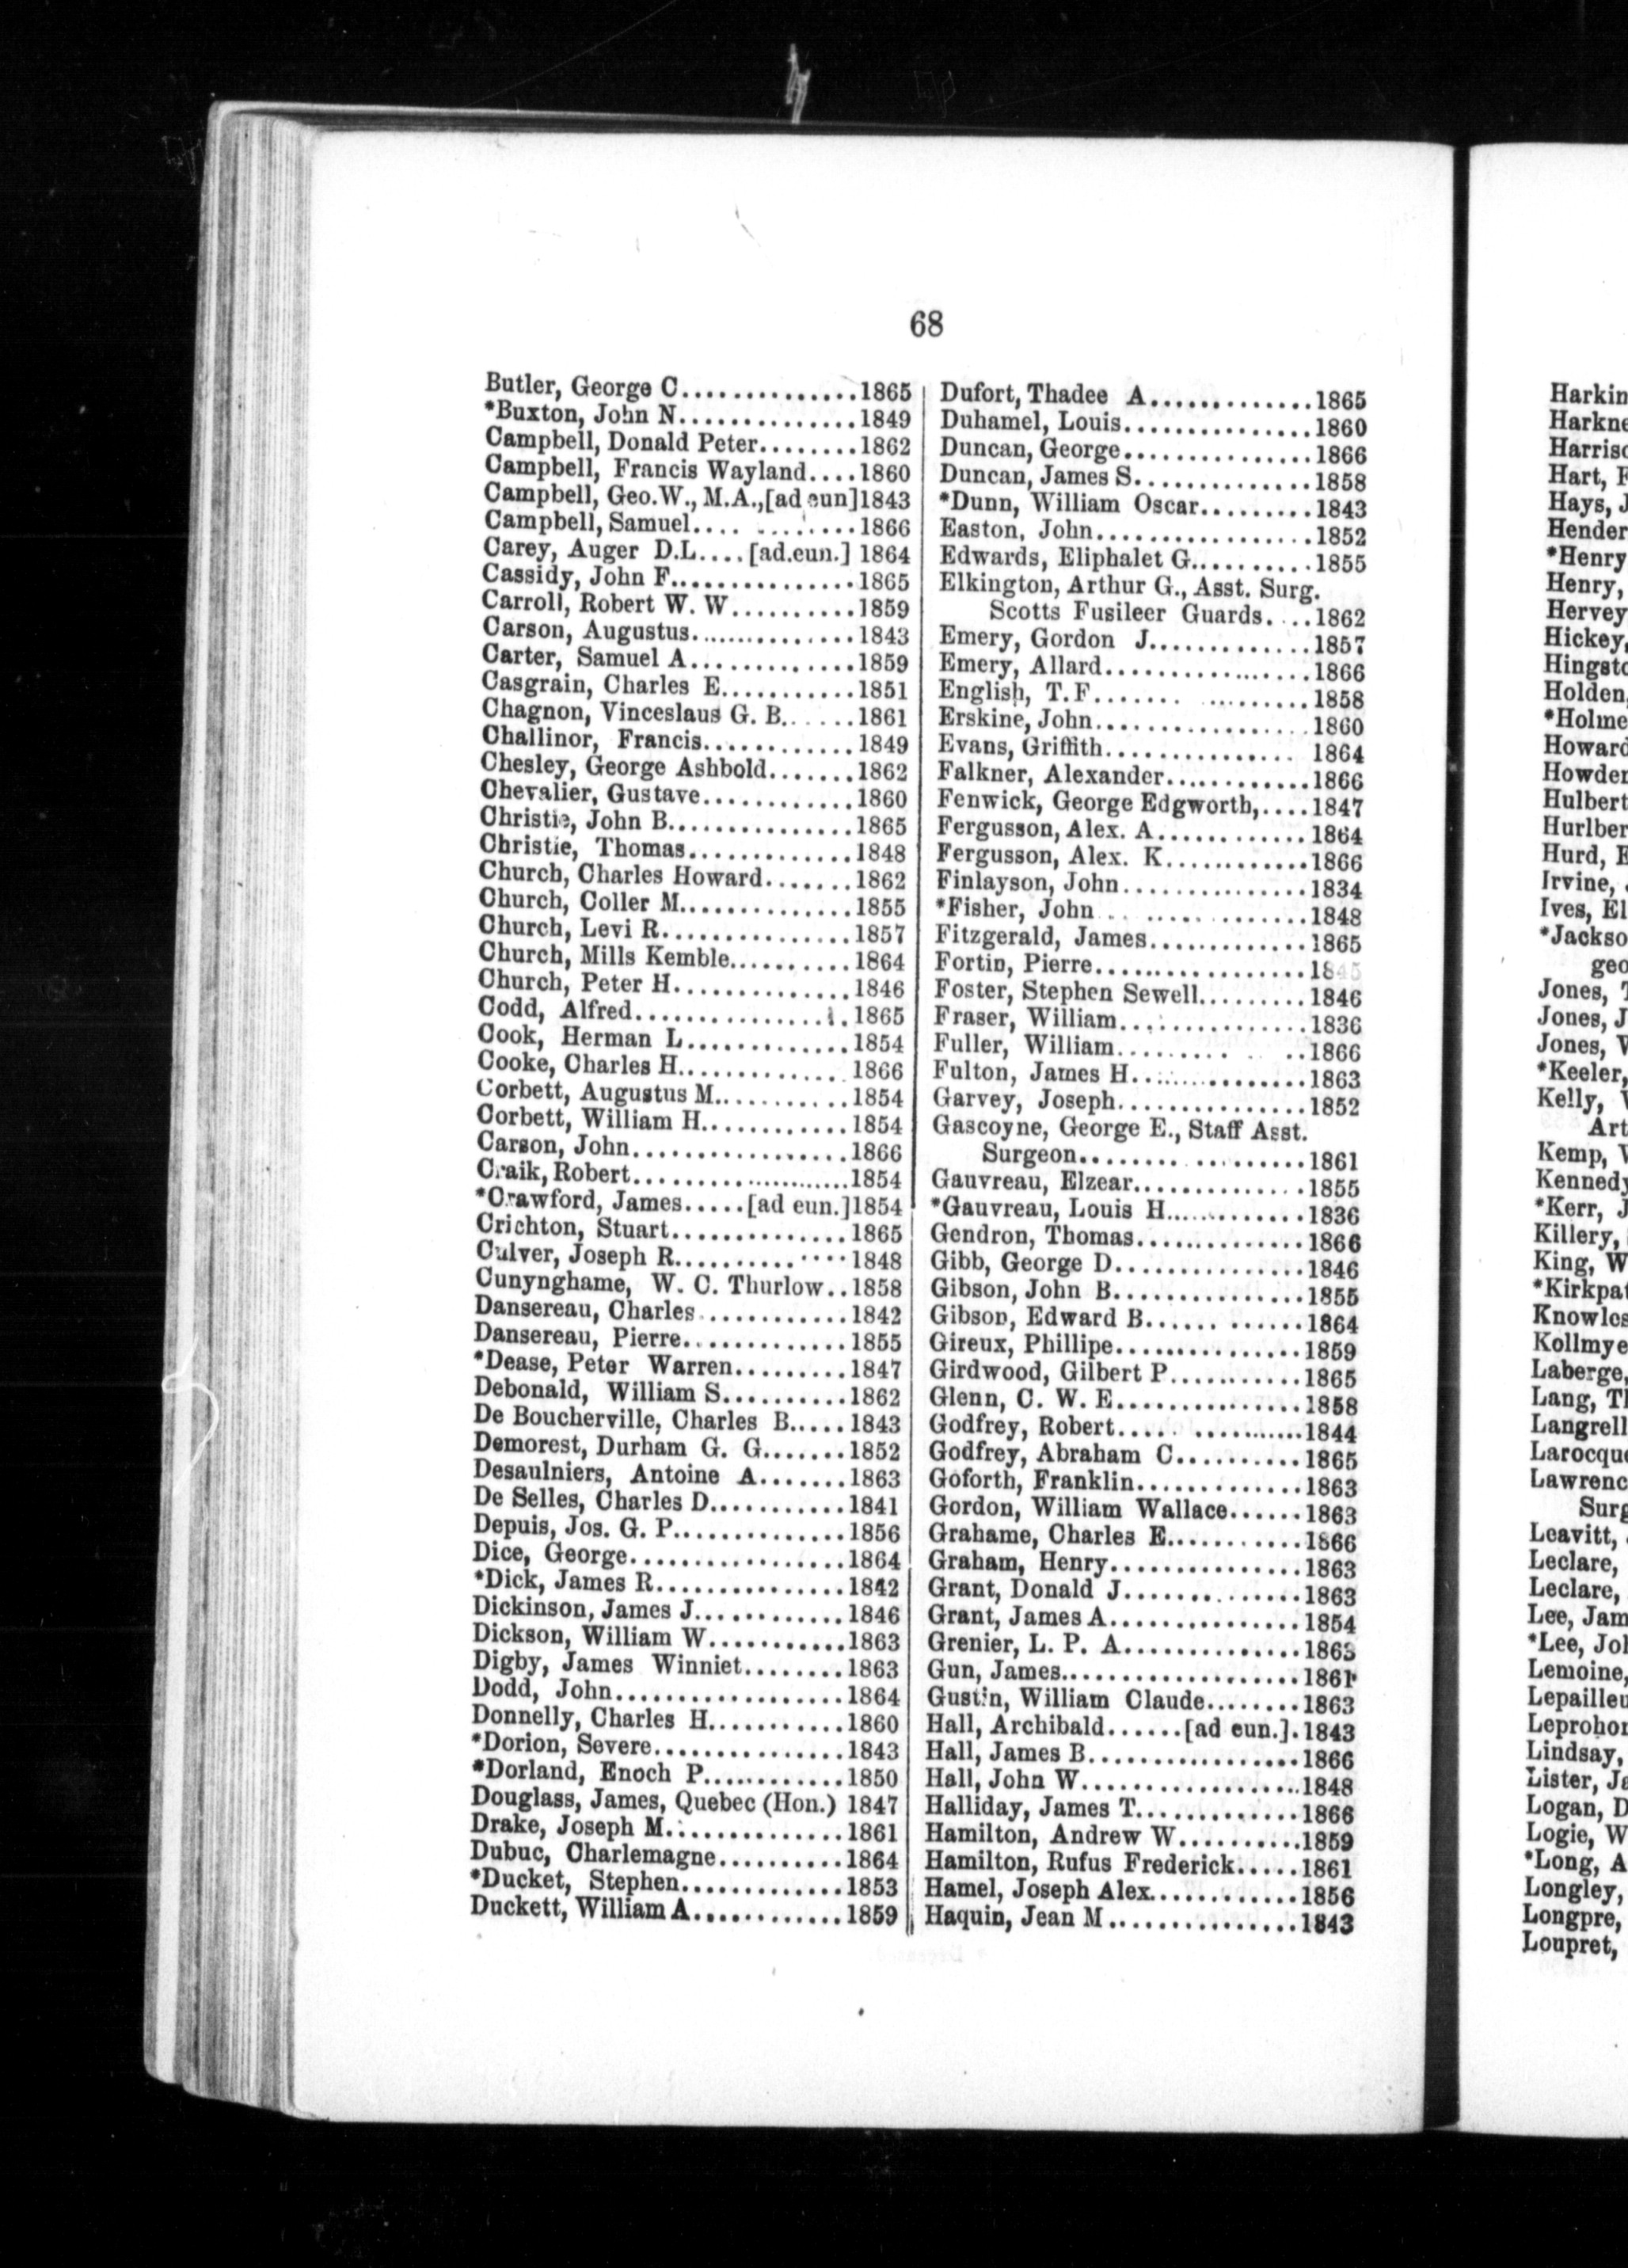 68
Butler, George C...............1865
*Buxton, John N...............1849
Campbell, Donald Peter........1862
Campbell, Francis Wayland....1860
Campbell, Geo.W., M.A.,[ad eun]1843
Campbell, Samuel.... .........1866
Carey, Auger D.L....[ad.eun.] 1864
Cassidy, John F................1865
Carroll, Robert W. W..........1859
Carson, Augustus..............1843
Carter, Samuel A..............1859
Casgrain, Charles E...........1851
Chagnon, Vinceslaus G. B......1861
Challinor, Francis.............1849
Chesley, George Ashbold.......1862
Chevalier, Gustave............1860
Christie, John B...............1865
Christie, Thomas.............1848
Church, Charles Howard.......1862
Church, Coller M..............1855
Church, Levi R...............1857
Church, Mills Kemble..........1864
Church, Peter H..............1846
Codd, Alfred.................1865
Cook, Herman L.............1854
Cooke, Charles H..............1866
Corbett, Augustus M...........1854
Corbett, William H............1854
Carson, John.................1866
Craik, Robert..................1854
*Crawford, James.....[ad eun.]1854
Crichton, Stuart...............1865
Culver, Joseph R..............1848
Cunynghame, W. C. Thurlow..1858
Dansereau, Charles............1842
Dansereau, Pierre..............1855
*Dease, Peter Warren.........1847
Debonald, William S..........1862
De Boucherville, Charles B.....1843
Demorest, Durham G. G.......1852
Desaulniers, Antoine A.......1863
De Selles, Charles D...........1841
Depuis, Jos. G. P..............1856
Dice, George.................1864
*Dick, James R...............1842
Dickinson, James J............1846
Dickson, William W...........1863
Digby, James Winniet........1863
Dodd, John...................1864
Donnelly, Charles H...........1860
*Dorion, Severe...............1843
*Dorland, Enoch P............1850
Douglass, James, Quebec (Hon.) 1847
Drake, Joseph M..............1861
Dubuc, Charlemagne..........1864
*Ducket, Stephen.............1853
Duckett, William A............1859
Dufort, Thadee A.............1865
Duhamel, Louis...............1860
Duncan, George...............1866
Duncan, James S..............1858
*Dunn, William Oscar.........1843
Easton, John.................1852
Edwards, Eliphalet G..........1855
Elkington, Arthur G., Asst. Surg.
Scotts Fusileer Guards....1862
Emery, Gordon J.............1857
Emery, Allard.................1866
English, T. F....... .........1858
Erskine, John.................1860
Evans, Griffith................ 1864
Falkner, Alexander............1866
Fenwick, George Edgworth,....1847
Fergusson, Alex. A............1864
Fergusson, Alex. K............1866
Finlayson, John...............1834
*Fisher, John .. .............1848
Fitzgerald, James.............1865
Fortin, Pierre..................1845
Foster, Stephen Sewell.........1846
Fraser, William................1836
Fuller, William......... . ..1866
Fulton, James H..............1863
Garvey, Joseph...............1852
Gascoyne, George E., Staff Asst.
Surgeon........ ..........1861
Gauvreau, Elzear..............1855
*Gauvreau, Louis H............1836
Gendron, Thomas..............1866
Gibb, George D...............1846
Gibson, John B...............1855
Gibson, Edward B...... ......1864
Gireux, Phillipe...............1859
Girdwood, Gilbert P...........1865
Glenn, C. W. E...............1858
Godfrey, Robert.... ..........1844
Godfrey, Abraham C..........1865
Goforth, Franklin.............1863
Gordon, William Wallace......1863
Grahame, Charles E...........1866
Graham, Henry...............1863
Grant, Donald J..............1863
Grant, James A...............1854
Grenier, L. P. A..............1863
Gun, James...................1861
Gustin, William Claude........1863
Hall, Archibald......[ad eun.].1843
Hall, James B.................1866
Hall, John W..................1848
Halliday, James T.............1866
Hamilton, Andrew W..........1859
Hamilton, Rufus Frederick.....1861
Hamel, Joseph Alex............1856
Haquin, Jean M...............1843
Harkin
Harkne
Harriso
Hart, F
Hays, J
Hender
*Henry
Henry,
Hervey
Hickey,
Hingsto
Holden,
*Holme
Howard
Howden
Hulbert
Hurlber
Hurd, E
Irvine,
Ives, El
*Jackso
geo
Jones, T
Jones, J
Jones, W
*Keeler,
Kelly, W
Art
Kemp, W
Kennedy
*Kerr, J
Killery,
King, W
*Kirkpat
Knowles
Kollmye
Laberge,
Lang, Th
Langrell
Larocque
Lawrenc
Surg
Leavitt,
Leclare,
Leclare,
Lee, Jam
*Lee, Joh
Lemoine,
Lepailleu
Leprohon
Lindsay,
Lister, Ja
Logan, D
Logie, W
*Long, A
Longley,
Longpre,
Loupret,